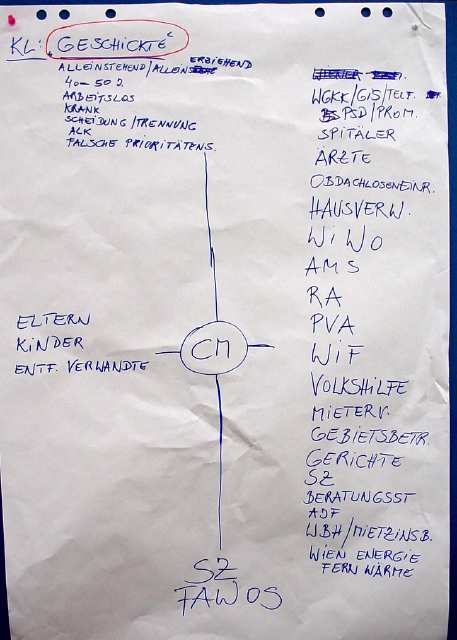 KL: "GESCHICKTE"
ALLEINSTEHEND/ALLEINERZIEHEND
40-50 J.
ARBEITSLOS
KRANK
SCHEIDUNG/TRENNUNG
ALK
FALSCHE PRIORITÄTENS.
ELTERN
KINDER
ENTF. VERWANDTE
CM
SZ
FAWOS
WGKK/GIS/TELF.
PSD/PROM.
SPITÄLER
ÄRZTE
OBDACHLOSENEINR.
HAUSVERW.
WIWO
AMS
RA
PVA
WIF
VOLKSHILFE
MIETERV.
GEBIETSBETR.
GERICHTE
SZ
BERATUNGSST
ADF
WBH/MIETZINSB.
WIEN ENERGIE
FERNWÄRME